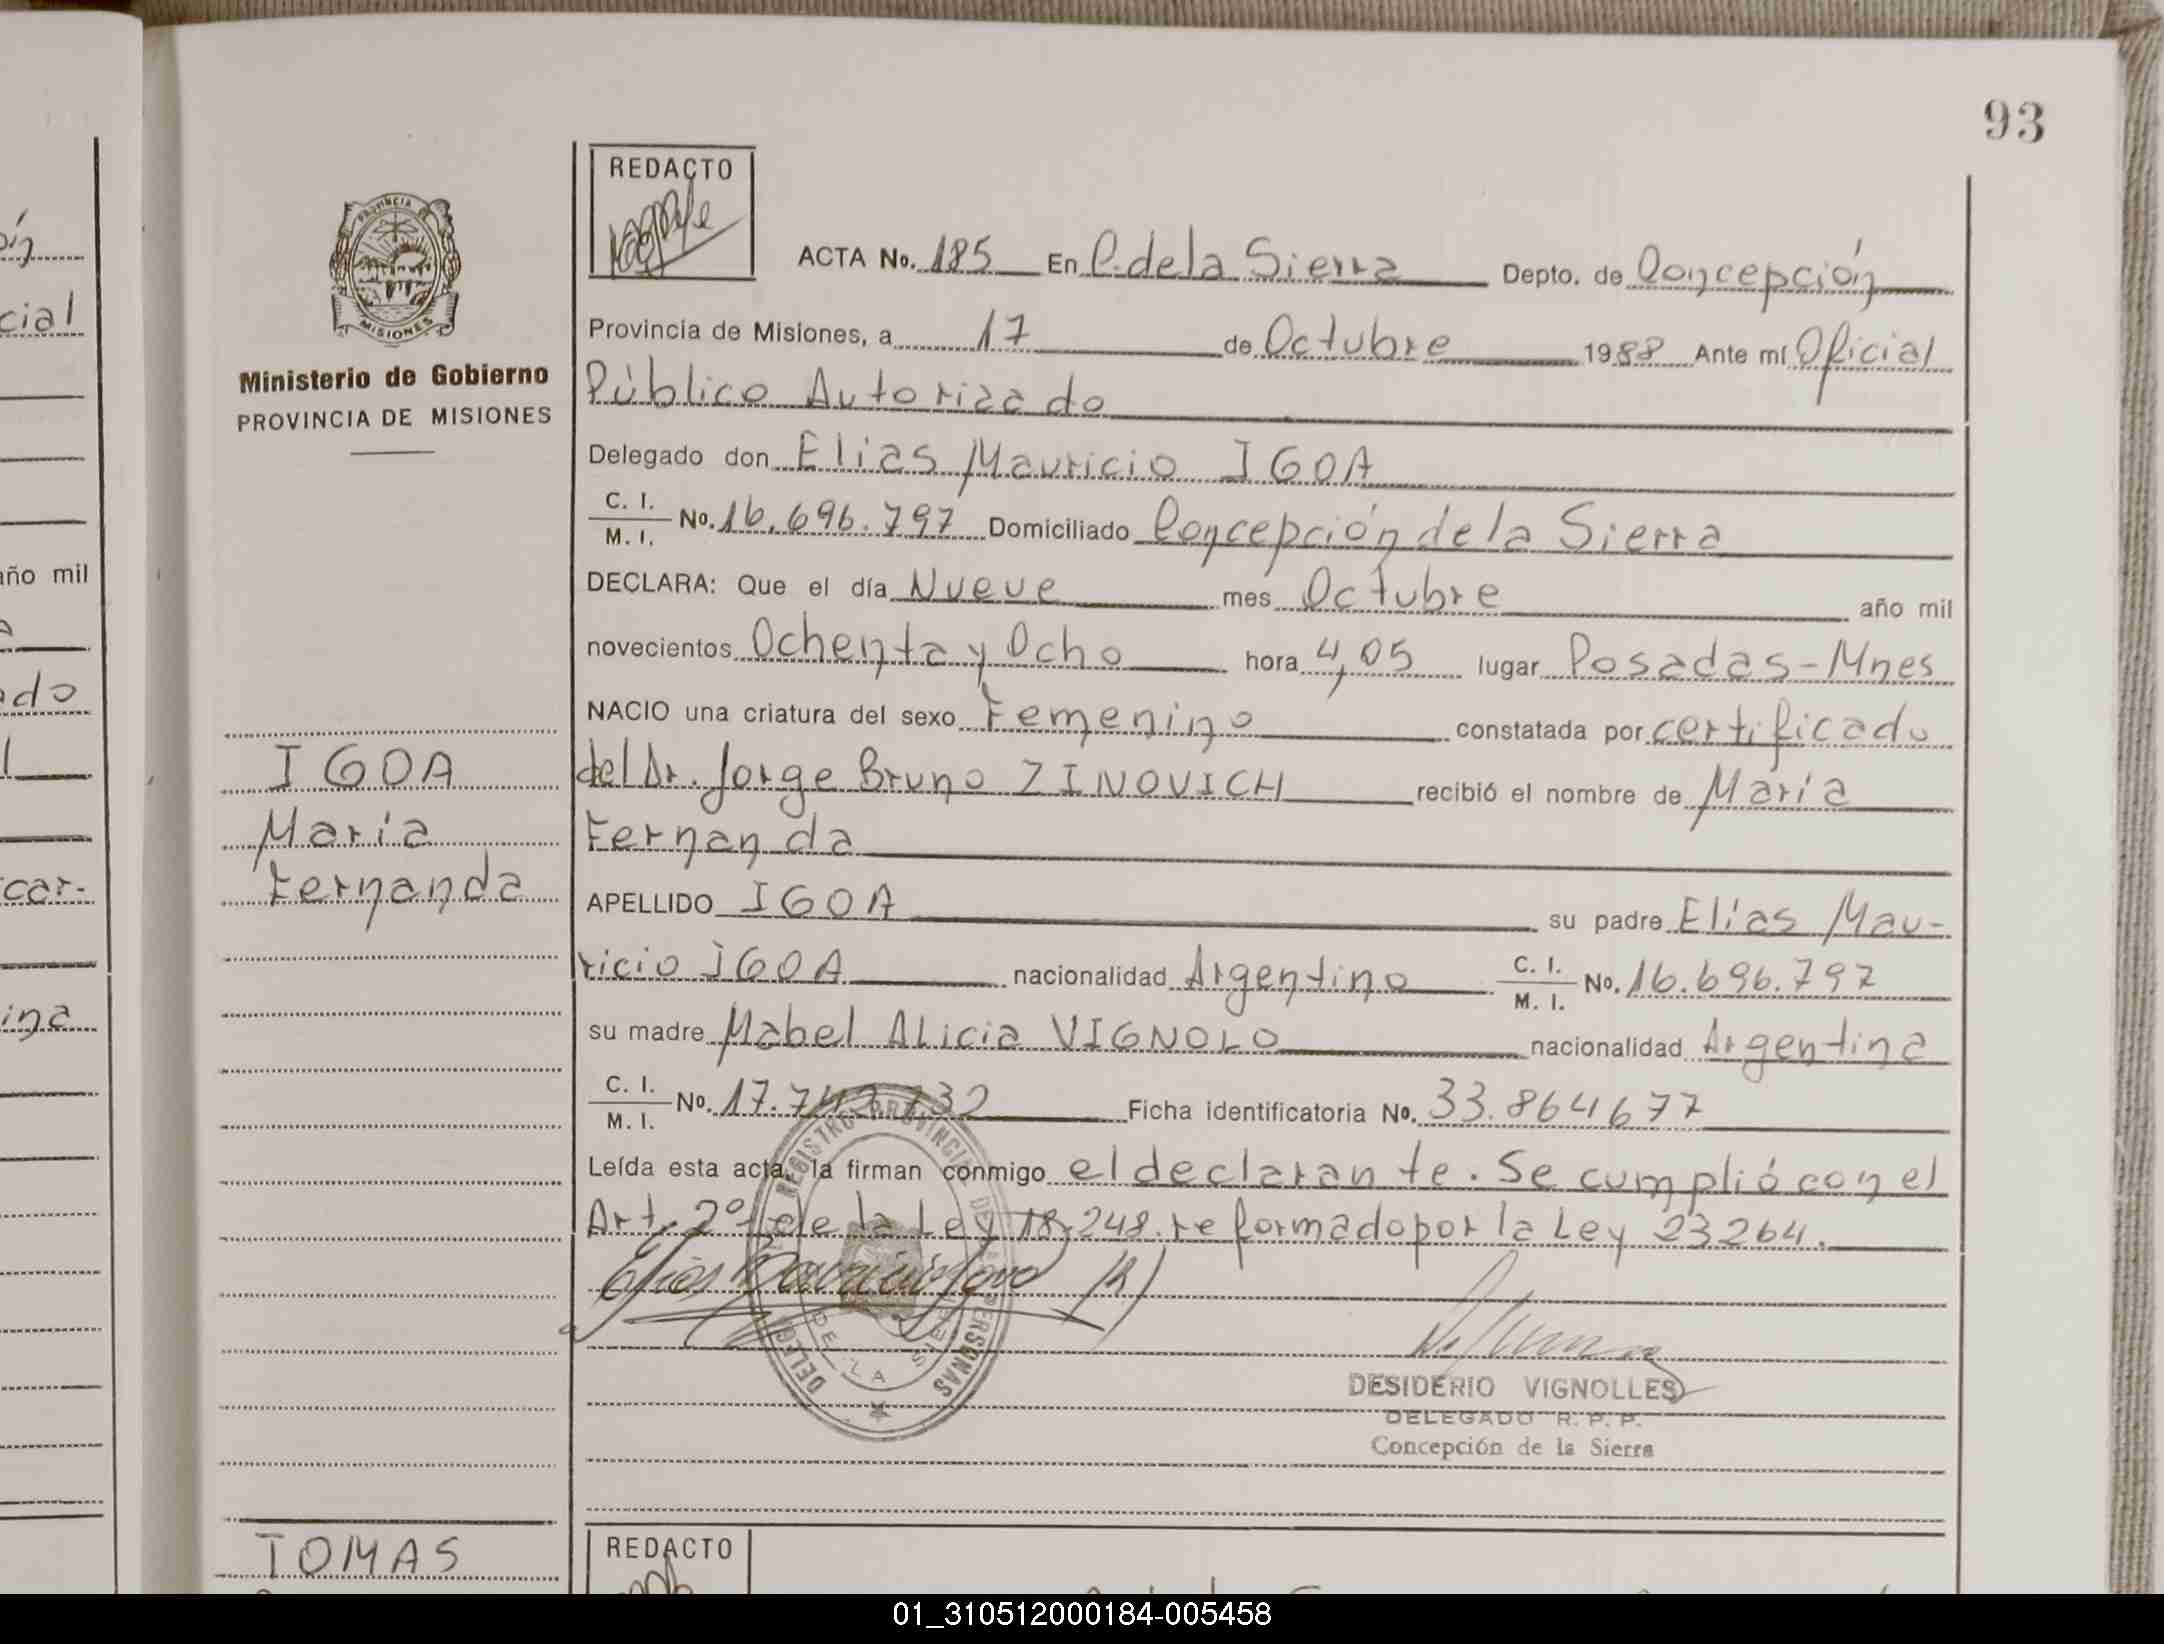 93
REDACTO
ACTA No. 185 En C. de la Sierra Depto. de Concepción
PROVINCIA DE MISIONES
Ministerio de Gobierno
PROVINCIA DE MISIONES
Provincia de Misiones, a 17 de Octubre 1988 Ante mí Oficial
Público Autorizado
Delegado don Elias Mauricio IGOA
C. I. / M. I. No. 16.696.797 Domiciliado Concepción de la Sierra
DECLARA: Que el día Nueve mes Octubre año mil
novecientos Ochenta y Ocho hora 4,05 lugar Posadas-Mnes
NACIO una criatura del sexo Femenino constatada por certificado
del Dr. Jorge Bruno ZINOVICH recibió el nombre de María
Fernanda
APELLIDO IGOA su padre Elías Mau-
ricio IGOA nacionalidad Argentino C. I. / M. I. No. 16.696.797
su madre Mabel Alicia VIGNOLO nacionalidad Argentina
C. I. / M. I. No. 17. Ficha identificatoria No. 33.864677
Leída esta acta, la firman conmigo el declarante. Se cumplió con el
Art. 2º de la Ley 18.248. reformado por la Ley 23264.
REGISTRO PROVINCIAL DE LAS PERSONAS
DE LA
DESIDERIO VIGNOLLES
DELEGADO R. P. P.
Concepción de la Sierra
IGOA
María
Fernanda
TOMAS
REDACTO
cial
año mil
ado
car-
ina
01_310512000184-005458